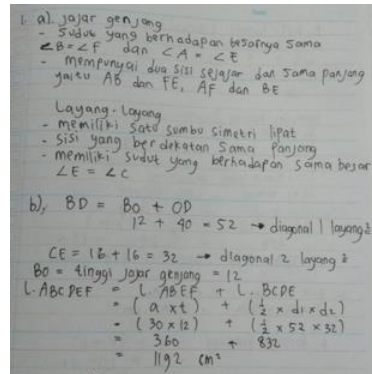 1. a). Jajar genjang
- Sudut yang berhadapan besarnya sama
∠B = ∠F dan ∠A = ∠E
- mempunyai dua sisi sejajar dan sama panjang
yaitu AB dan FE, AF dan BE
Layang-Layang
- memiliki satu sumbu simetri lipat
- sisi yang berdekatan sama panjang
- memiliki sudut yang berhadapan sama besar
∠E = ∠C
b). BD = BO + OD
12 + 40 = 52 → diagonal 1 layang²
CE = 16 + 16 = 32 → diagonal 2 layang²
BO = tinggi jajar genjang = 12
L. ABCDEF = L. ABEF + L. BCDE
= (a x t) + (½ x d1 x d2)
= (30 x 12) + (½ x 52 x 32)
= 360 + 832
= 1192 cm²